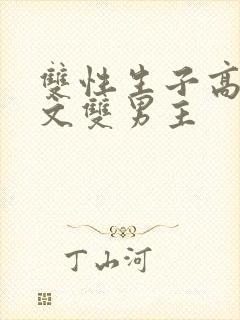 雙性生子高
文雙男主
丁山河